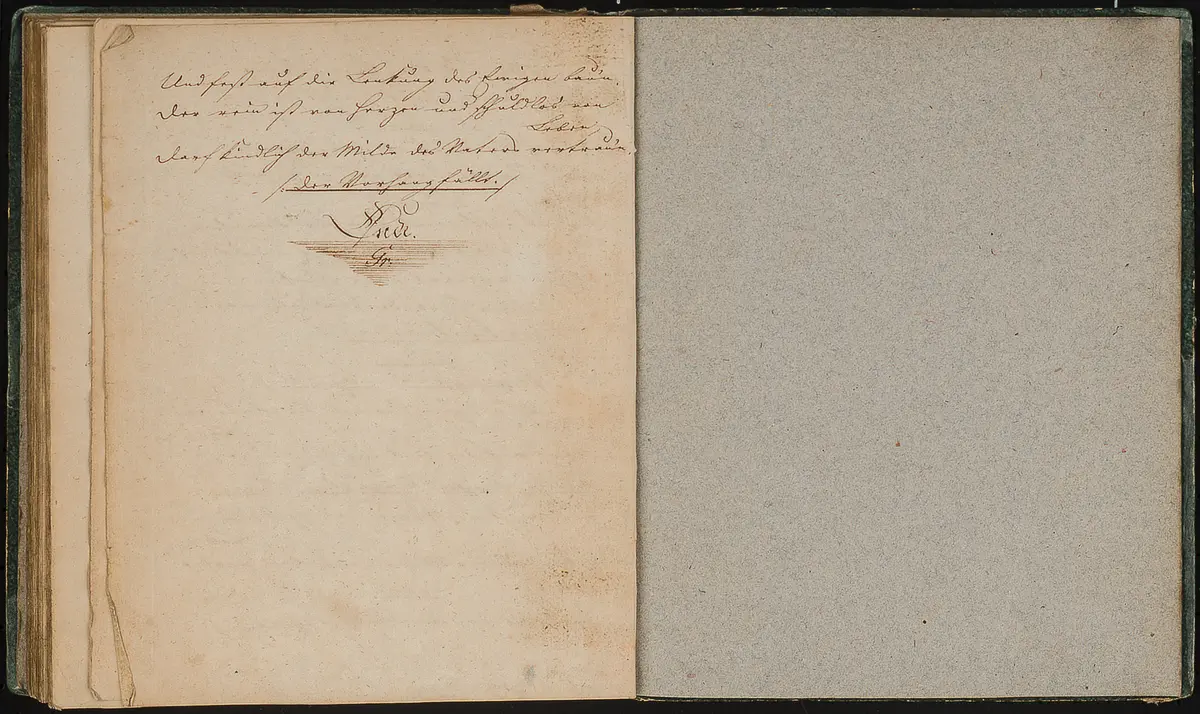 Und fest auf die Lenkung des Ewigen baun.
Der rein ist von Herzen und schuldlos von
Leben,
Darf kindlich der Milde des Vaters vertraun.
/: Der Vorhang fällt. :/
Ende.